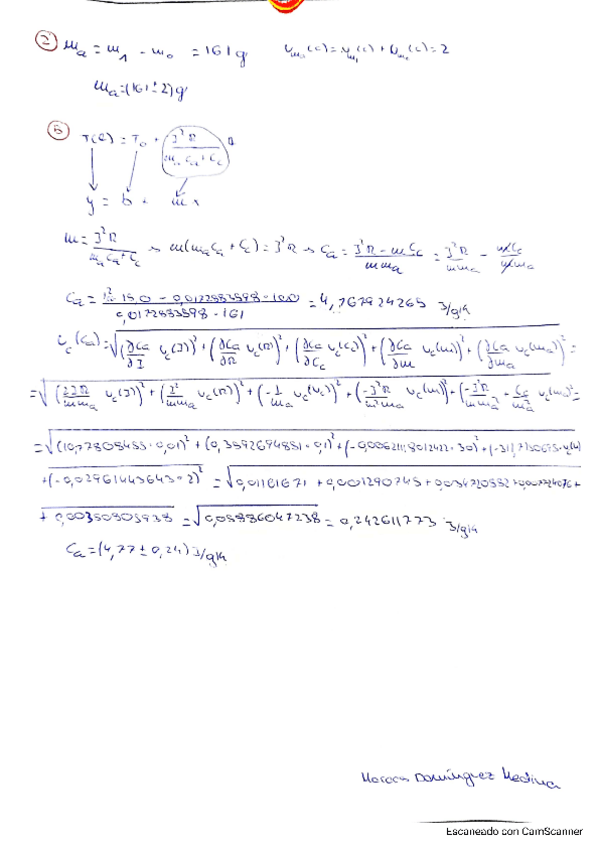 2 ma = m1 - m0 = 161 g   um0(c) = um1(c) + um0(c) = 2
ma = (161 ± 2) g
5 T(t) = T0 + I²R / (ma ca + Cc) t
y = b + m x
m = I²R / (ma ca + Cc) → m(ma ca + Cc) = I²R → ca = (I²R - m Cc) / (m ma) = I²R / (m ma) - m Cc / (m ma)
= 4,767924265 J/gK
uc(ca) = √((∂ca/∂I uc(I))² + (∂ca/∂R uc(R))² + (∂ca/∂Cc uc(Cc))² + (∂ca/∂m uc(m))² + (∂ca/∂ma uc(ma))²) =
= √((2IR/(m ma) uc(I))² + (I²/(m ma) uc(R))² + (-1/ma uc(Cc))² + (-I²R/(m² ma) uc(m))² + (-I²R/(m ma²) + Cc/ma² uc(ma))²) =
= √((10,77808455·0,01)² + (0,3592694851·0,1)² + (-0,00621118012422·30)² +
+ (-0,02961443643·2)² = √0,01161671 + 0,001290745 + 0,034720552 +
+ 0,00350805938 = √0,05886047238 = 0,242611773 J/gK
ca = (4,77 ± 0,24) J/gK
Domínguez Medina
Escaneado con CamScanner